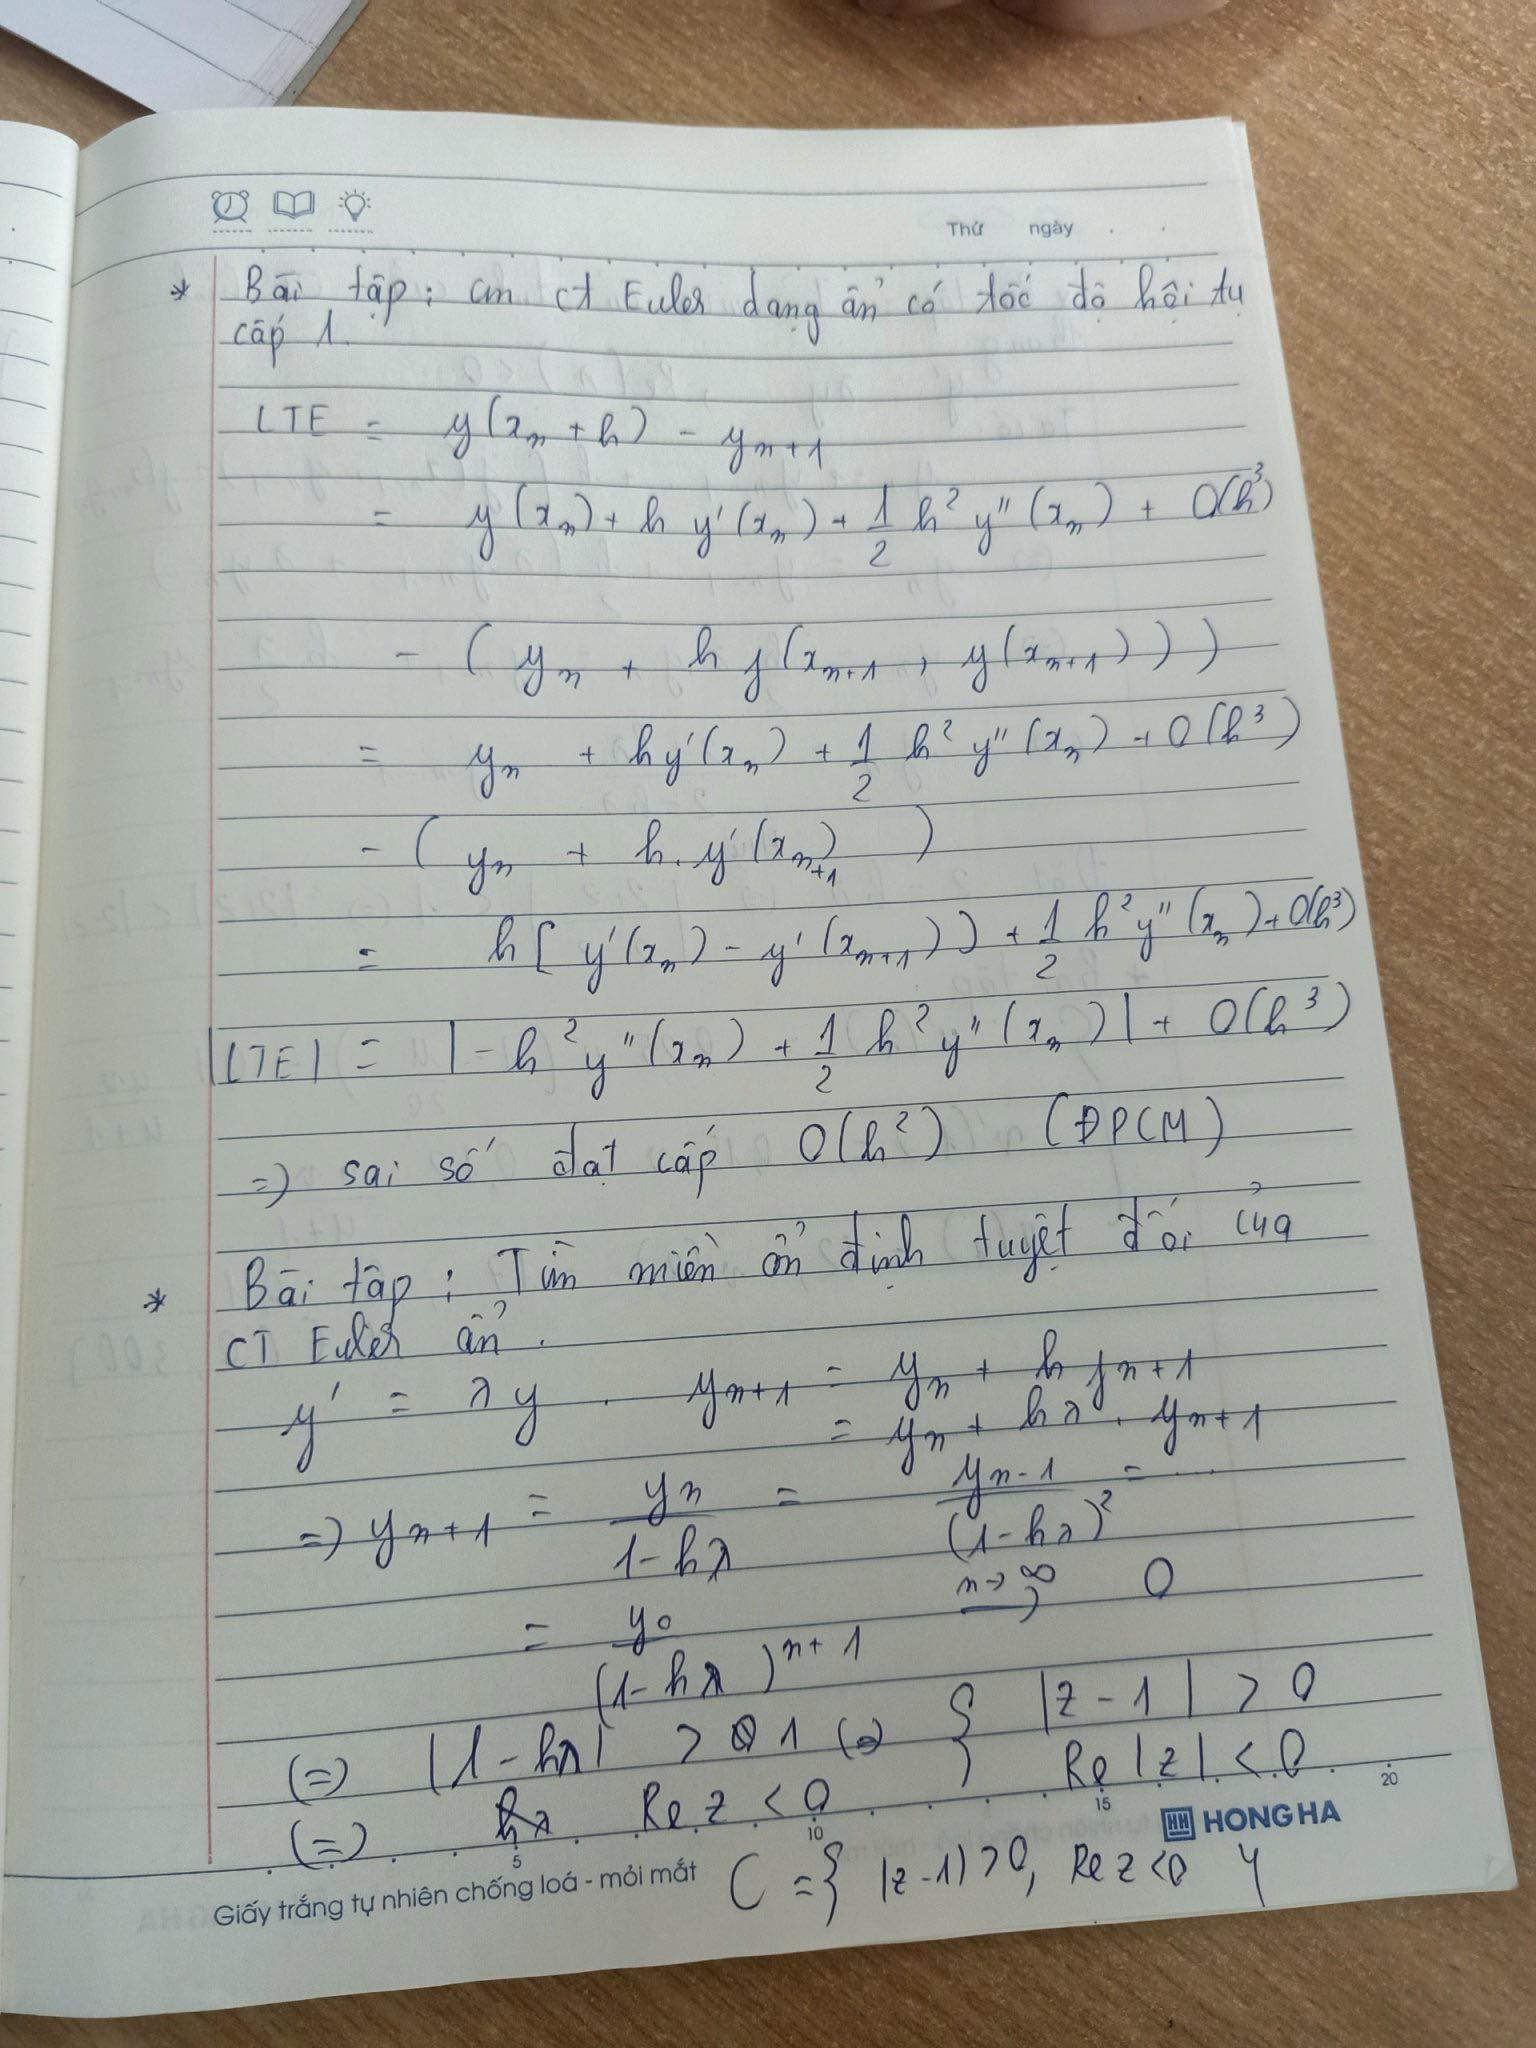 Thứ ngày
* Bài tập: cm ct Euler dạng ẩn có tốc độ hội tụ
cấp 1.
LTE = y(xₙ + h) - yₙ₊₁
= y(xₙ) + h y'(xₙ) + 1/2 h² y''(xₙ) + O(h³)
- (yₙ + h f(xₙ₊₁, y(xₙ₊₁)))
= yₙ + hy'(xₙ) + 1/2 h² y''(xₙ) + O(h³)
- (yₙ + h.y'(xₙ₊₁))
= h[y'(xₙ) - y'(xₙ₊₁)] + 1/2 h² y''(xₙ) + O(h³)
|LTE| = |-h² y''(xₙ) + 1/2 h² y''(xₙ)| + O(h³)
=> sai số đạt cấp O(h²) (ĐPCM)
* Bài tập: Tìm miền ổn định tuyệt đối của
CT Euler ẩn.
y' = λy. yₙ₊₁ = yₙ + h fₙ₊₁
= yₙ + hλ.yₙ₊₁
=> yₙ₊₁ = yₙ/(1-hλ) = yₙ₋₁/(1-hλ)² = ...
= y₀/(1-hλ)ⁿ⁺¹ n→∞ → 0
(=) |1-hλ| > 1 (=) { |z-1| > 0
Re|z| < 0
(=) Re z < 0
C = { |z-1| > 0, Re z < 0 }
5 10 15 20
HONG HA
Giấy trắng tự nhiên chống loá - mỏi mắt